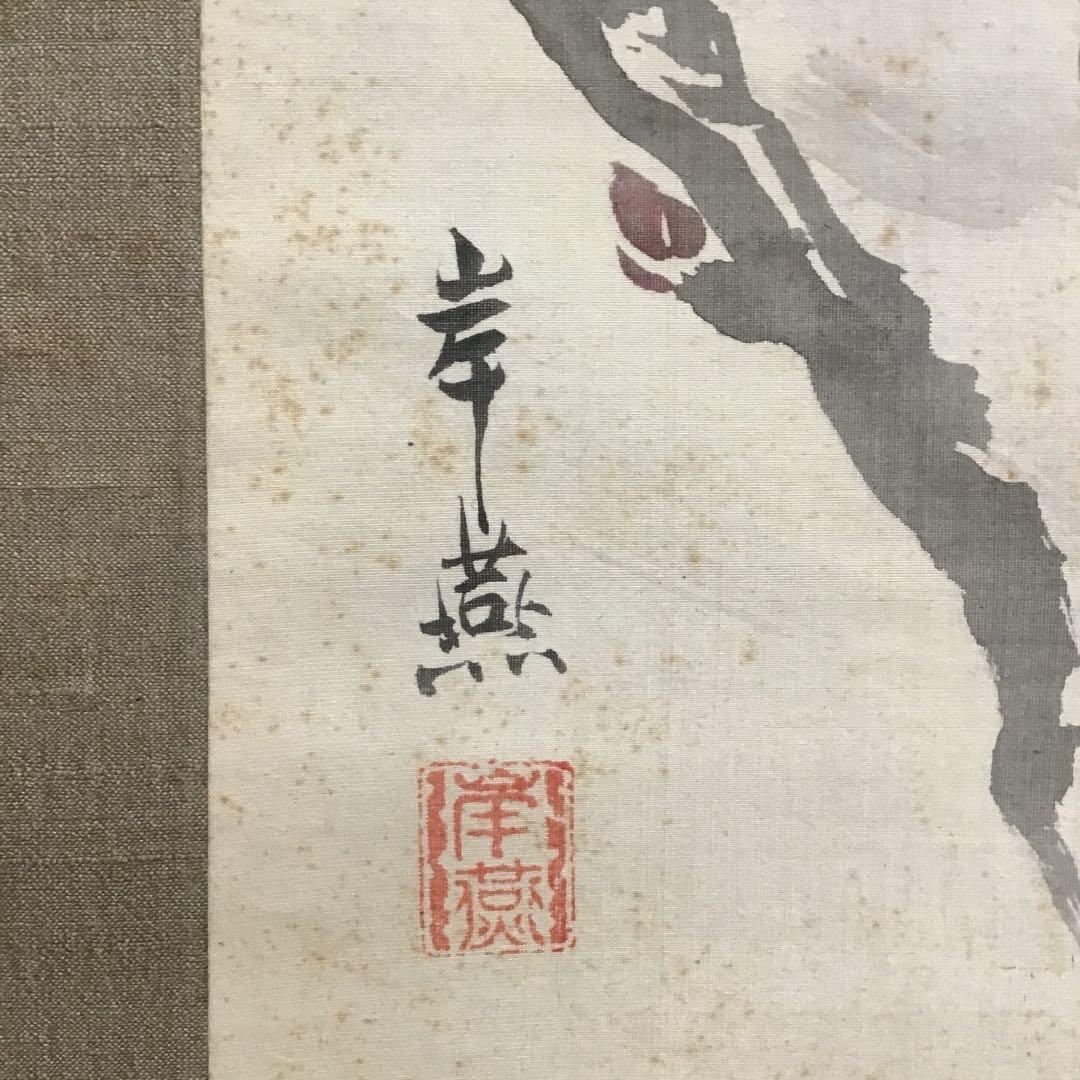 岸燕
岸燕